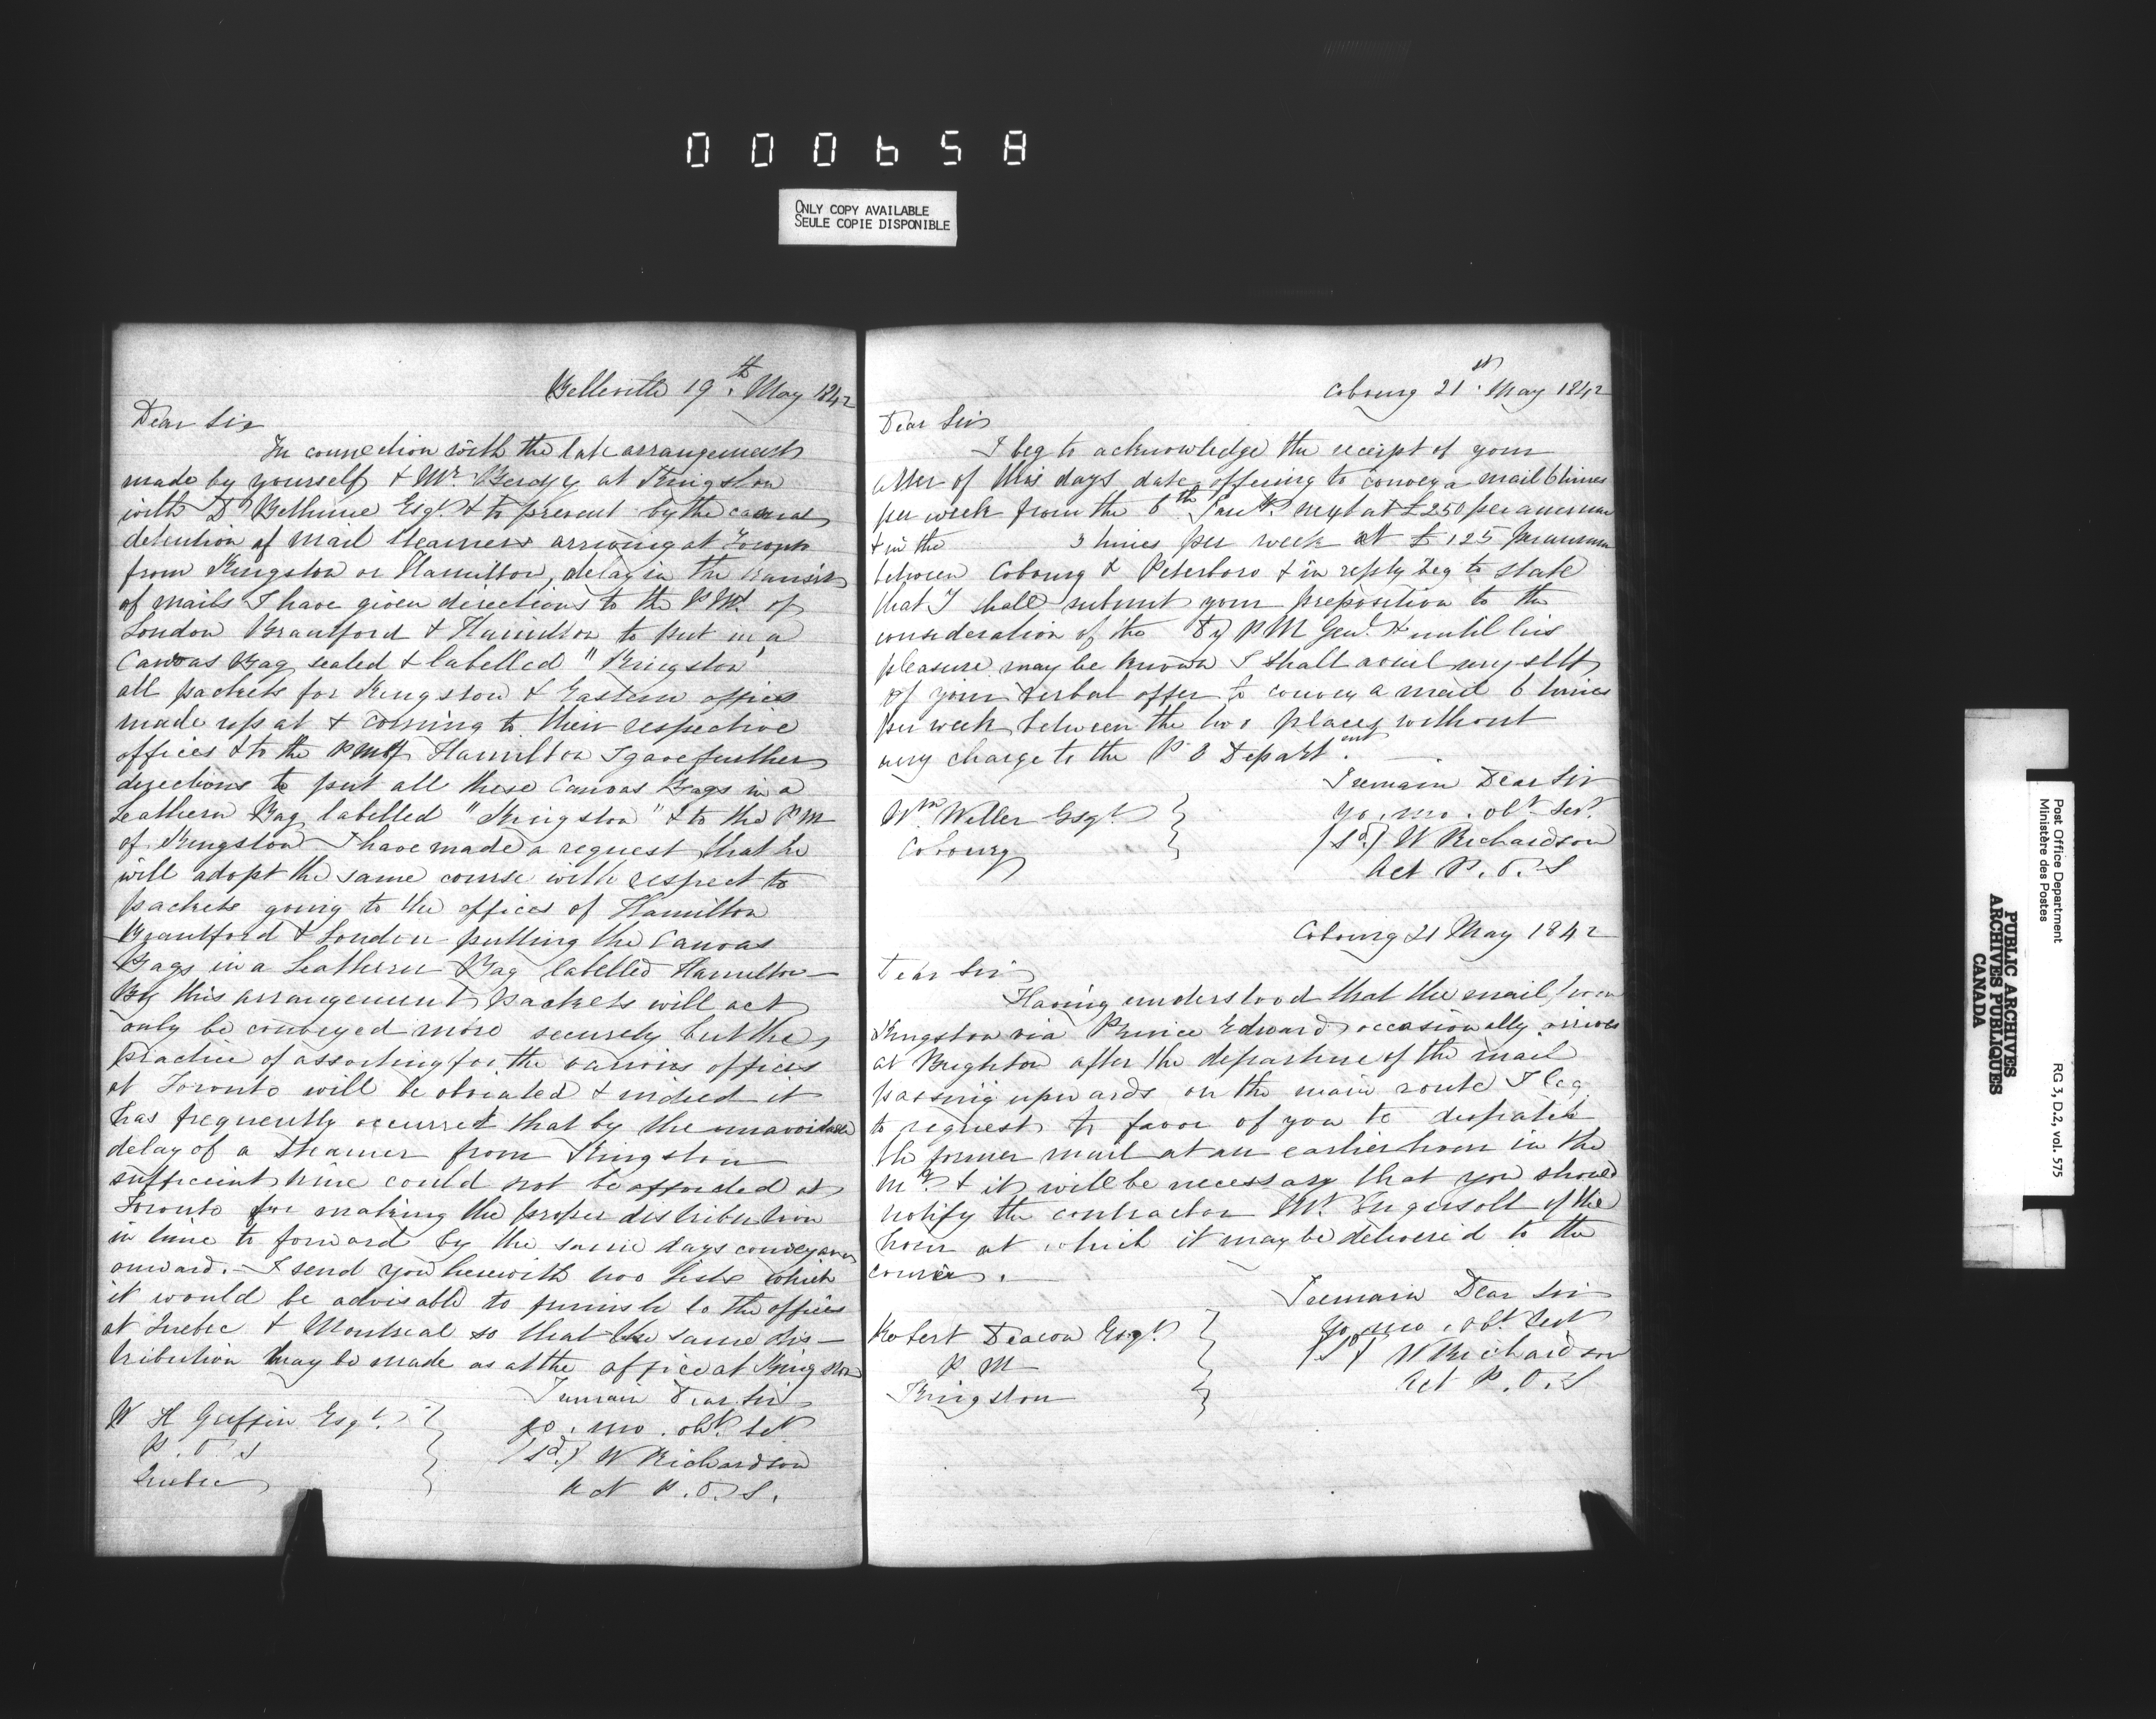 000658
ONLY COPY AVAILABLE
SEULE COPIE DISPONIBLE
Belleville 19th May 1842
Dear Sir
In connection with the late arrangements
made by yourself & Mr Berczy at Kingston
with D Bethune Esqr & to prevent by the casual
detention of mail steamers arriving at Toronto
from Kingston or Hamilton, delay in the transit
of mails I have given directions to the P Mrs of
London Brantford & Hamilton to put in a
Canvas Bag sealed & labelled "Kingston"
all packets for Kingston & Eastern offices
made up at & coming to their respective
offices & to the PM of Hamilton I gave further
directions to put all these Canvas Bags in a
Leathern Bag labelled "Kingston" & to the PM
of Kingston I have made a request that he
will adopt the same course with respect to
packets going to the offices of Hamilton
Brantford & London putting the Canvas
Bags in a Leathern Bag labelled Hamilton –
By this arrangement packets will not
only be conveyed more securely but the
practice of assorting for the various offices
at Toronto will be obviated & indeed it
has frequently occurred that by the unavoidable
delay of a steamer from Kingston
sufficient time could not be afforded at
Toronto for making the proper distribution
in time to forward by the same days conveyance
onward. – I send you herewith two lists which
it would be advisable to furnish to the offices
at Quebec & Montreal so that the same dis–
tribution may be made as at the office at Kingston
I remain Dear Sir
yo. mo. obt. St
(Sd.) W Richardson
Act P.O.S.
W H Griffin Esqr.
P.O.S
Quebec
Cobourg 21st May 1842
Dear Sir
I beg to acknowledge the receipt of your
letter of this days date offering to convey a mail 6 times
per week from the 6th next at £250 per annum
& in the 3 times per week at £125 per annum
between Cobourg & Peterboro & in reply beg to state
that I shall submit your preposition to the
consideration of the Dy P M Genl. & until his
pleasure may be known I shall avail myself
of your verbal offer to convey a mail 6 times
per week between the two places without
any charge to the P O Department.
I remain Dear Sir
yo. mo. obt Sert.
(Sd.) W Richardson
Act P.O.S
Wm Weller Esqr.
Cobourg
Cobourg 21 May 1842
Dear Sir
Having understood that the mail from
Kingston via Prince Edward occasionally arrives
at Brighton after the departure of the mail
passing upwards on the main route I beg
to request the favor of you to despatch
the former mail at an earlier hour in the
mg. & it will be necessary that you should
notify the contractor Mr. Ingersoll of the
hour at which it may be delivered to the
courier. –
I remain Dear Sir
yo. mo. obt. Sert
(Sd) W Richardson
Act P.O.S
Robert Deacon Esqr.
P M
Kingston
PUBLIC ARCHIVES
ARCHIVES PUBLIQUES
CANADA
Post Office Department
Ministère des Postes
RG 3, D.2, vol. 575